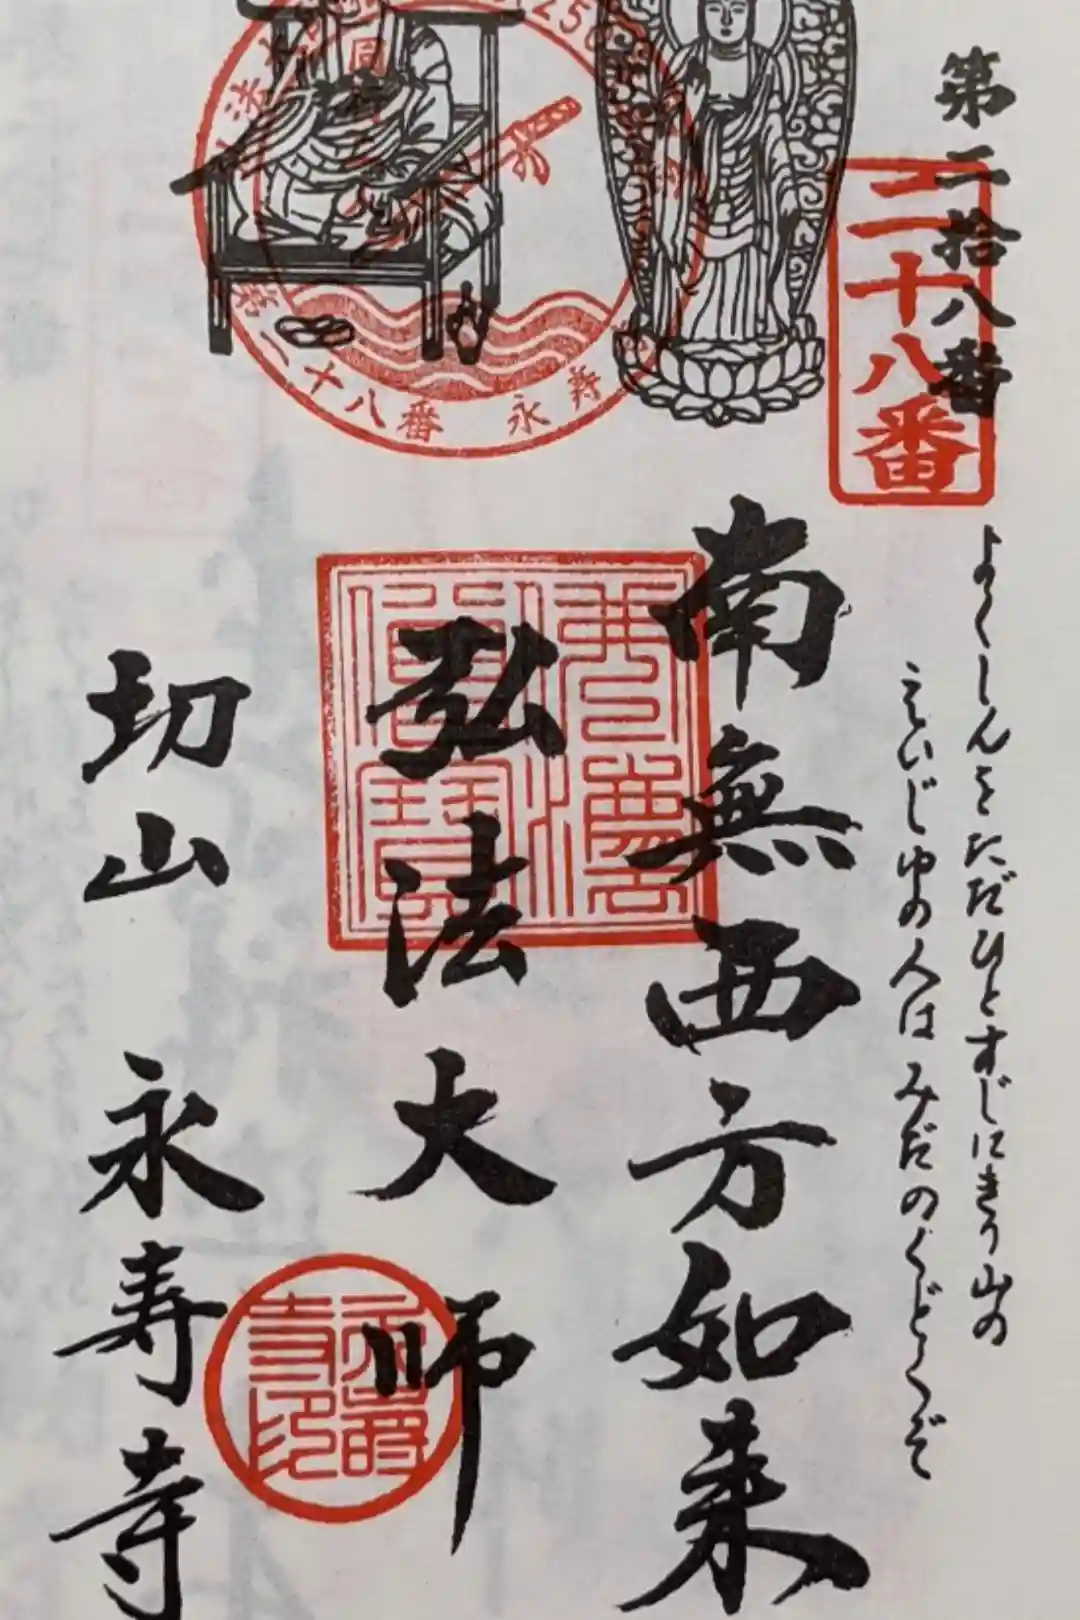 第二拾八番
二十八番
よくしんをただひとすじにきり山の
えいじゆの人はみだのくどくぞ
南無西方如来
弘法大師
切山 永寿寺
第二十八番 永寿
佛法僧寶
永壽寺印